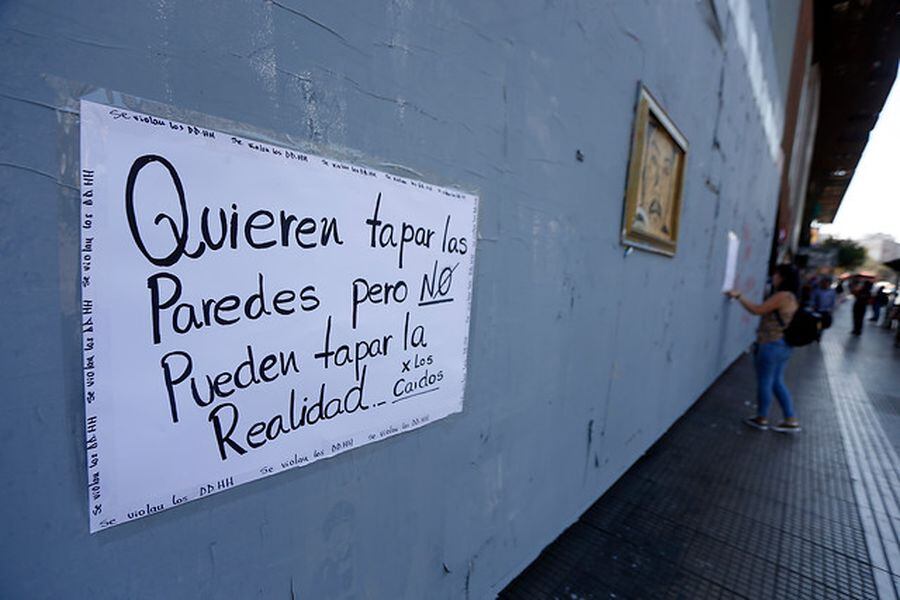 Se violan los DD.HH Se violan los DD.HH Se violan los DD.HH
Quieren tapar las
Paredes pero NO
Pueden tapar la
Realidad...
x Los
Caidos
Se violan los DD.HH Se violan los DD.HH Se violan los DD.HH
Se violan los DD.HH Se violan los DD.HH Se violan los DD.HH